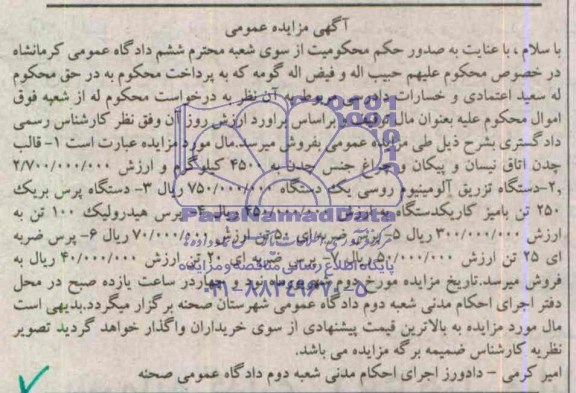 آگهی مزایده عمومی
با سلام ، با عنایت به صدور حکم محکومیت از سوی شعبه محترم ششم دادگاه عمومی کرمانشاه
در خصوص محکوم علیهم حبیب اله و فیض اله گومه که به پرداخت محکوم به در حق محکوم
له سعید اعتمادی و خسارات دادرسی مربوط به آن نظر به درخواست محکوم له از شعبه فوق
اموال محکوم علیه بعنوان مال براساس براورد ارزش روز آن وفق نظر کارشناس رسمی
دادگستری بشرح ذیل طی مزایده عمومی بفروش میرسد.مال مورد مزایده عبارت است ۱- قالب
چدن اتاق نیسان و پیکان و چراغ جنس چدن به ۴۵۰۰ کیلوگرم و ارزش ۲/۷۰۰/۰۰۰/۰۰۰
,۲-دستگاه تزریق آلومینیوم روسی یک دستگاه ۷۵۰/۰۰۰/۰۰۰ ریال ۳- دستگاه پرس بریک
۲۵۰ تن بامیز کاریکدستگاه ریال ۴- پرس هیدرولیک ۱۰۰ تن به
ارزش ۳۰۰/۰۰۰/۰۰۰ ریال ۵- پرس ضربه ای ۵۰ تن ارزش ۷۰/۰۰۰/۰۰۰ ریال ۶- پرس ضربه
ای ۲۵ تن ارزش ۵۰/۰۰۰/۰۰۰ ریال ۷- پرس ضربه ای ۲۰ تن ارزش ۴۰/۰۰۰/۰۰۰ ریال به
فروش میرسد.تاریخ مزایده مورخ دوم شهریورماه نود و چهاردر ساعت یازده صبح در محل
دفتر اجرای احکام مدنی شعبه دوم دادگاه عمومی شهرستان صحنه برگزار میگردد.بدیهی است
مال مورد مزایده به بالاترین قیمت پیشنهادی از سوی خریداران واگذار خواهد گردید تصویر
نظریه کارشناس ضمیمه برگه مزایده می باشد.
امیر کرمی - دادورز اجرای احکام مدنی شعبه دوم دادگاه عمومی صحنه
ParsNamadData
پایگاه اطلاع رسانی مناقصه و مزایده
۰۲۱-۸۸۳۴۹۶۷۰-۵